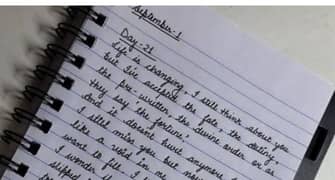 September-1
Day-21
Life is changing, I still think about you
but I've accepted the fate, the destiny,
the pre-written, the divine order or as
they say 'the fortune'.
and it doesn't hurt anymore
I still miss you but now
like a void in me
want to fill. I
I wonder if
slipped